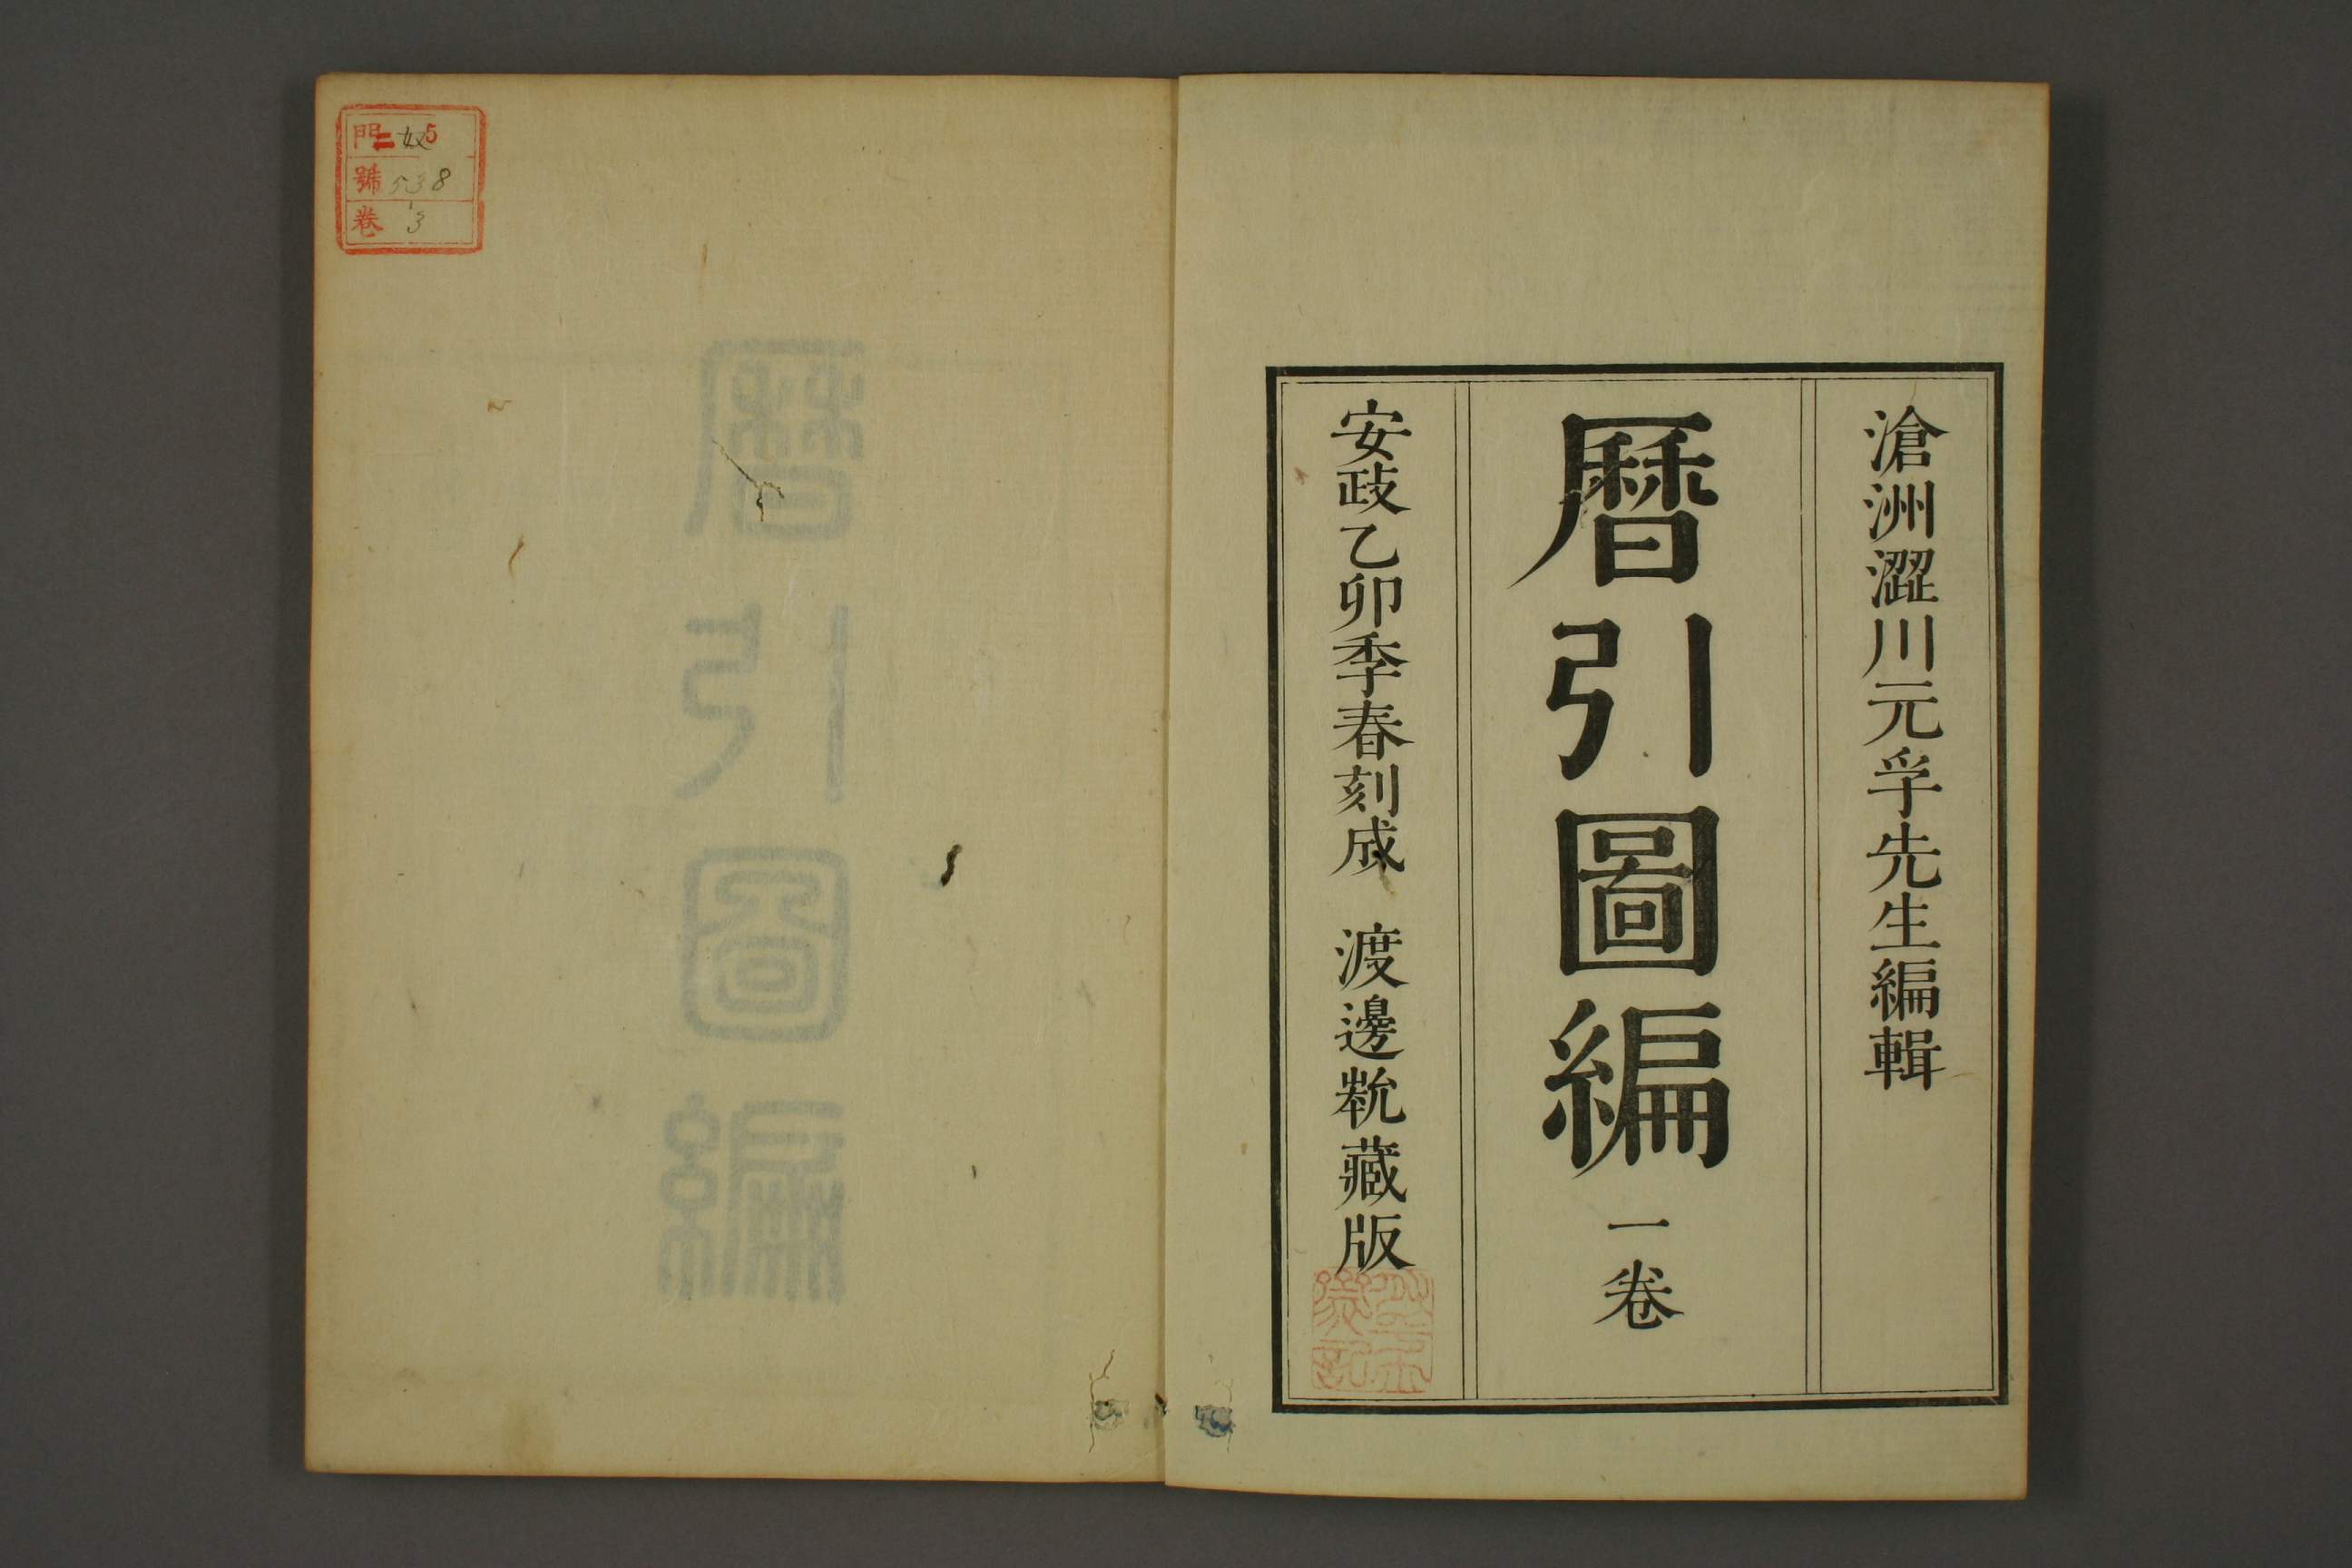 滄洲澀川元孚先生編輯
曆引圖編 一卷
安政乙卯季春刻成 渡邊㪇藏版
門 ニ 5
號 538
卷 3
曆引圖編